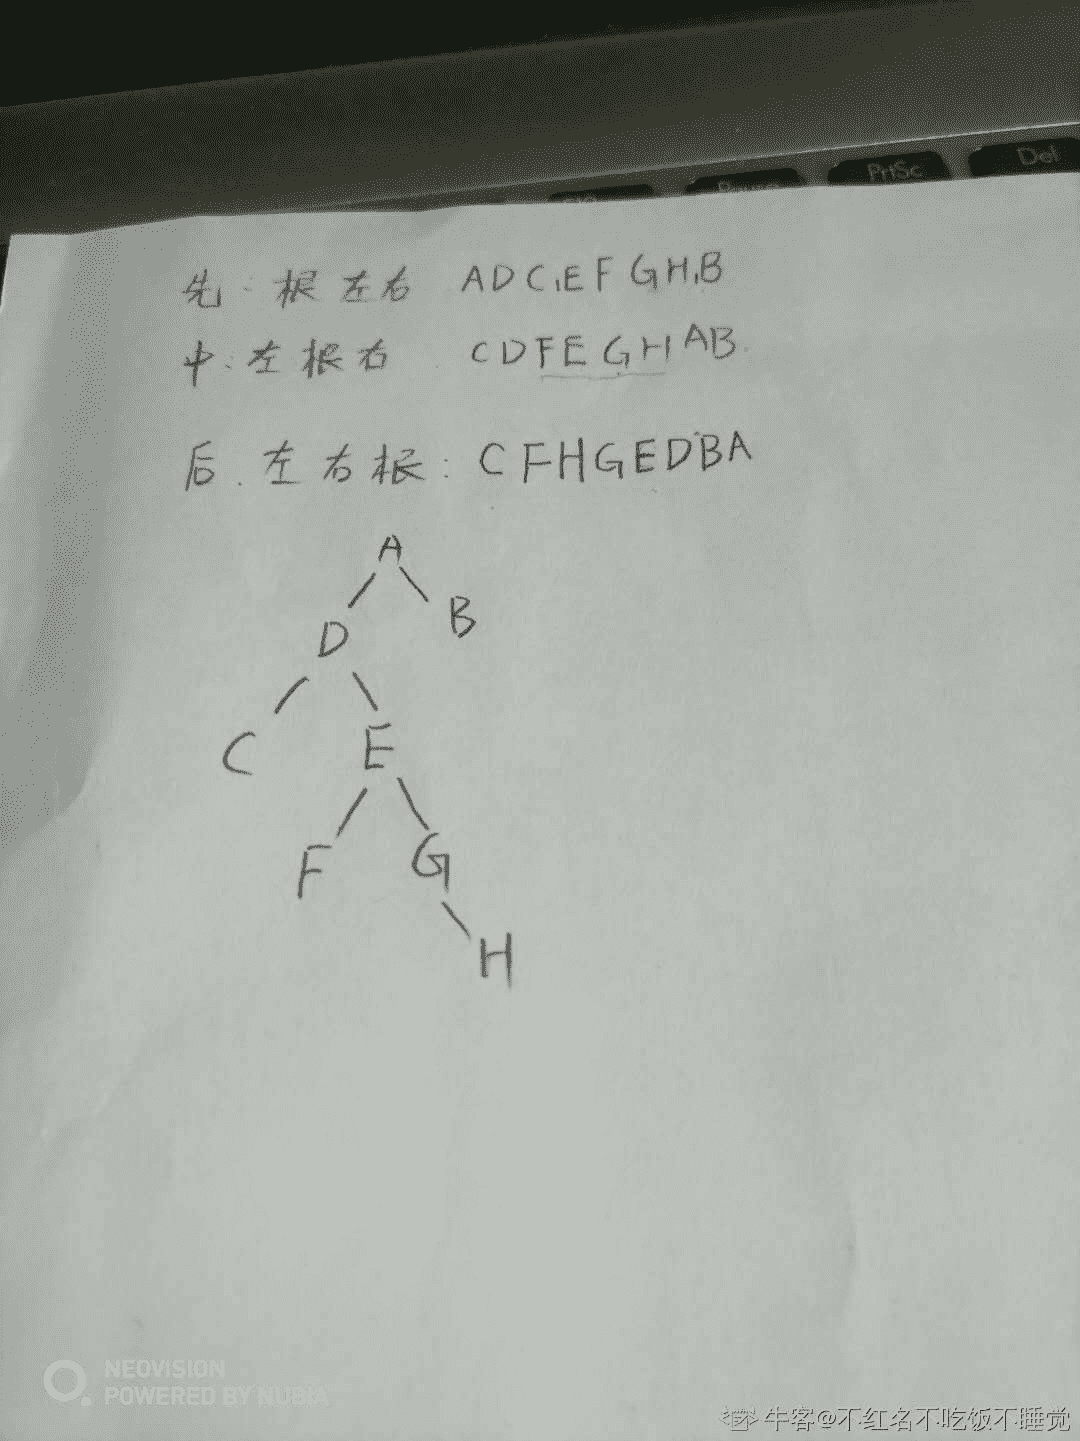 PrtSc
Del
先: 根左右 ADC,EFGH,B
中: 左根右 CDFEGHAB
后: 左右根: CFHGEDBA
A
B
D
C
E
F
G
H
NEOVISION
POWERED BY NUBIA
牛客@不红名不吃饭不睡觉